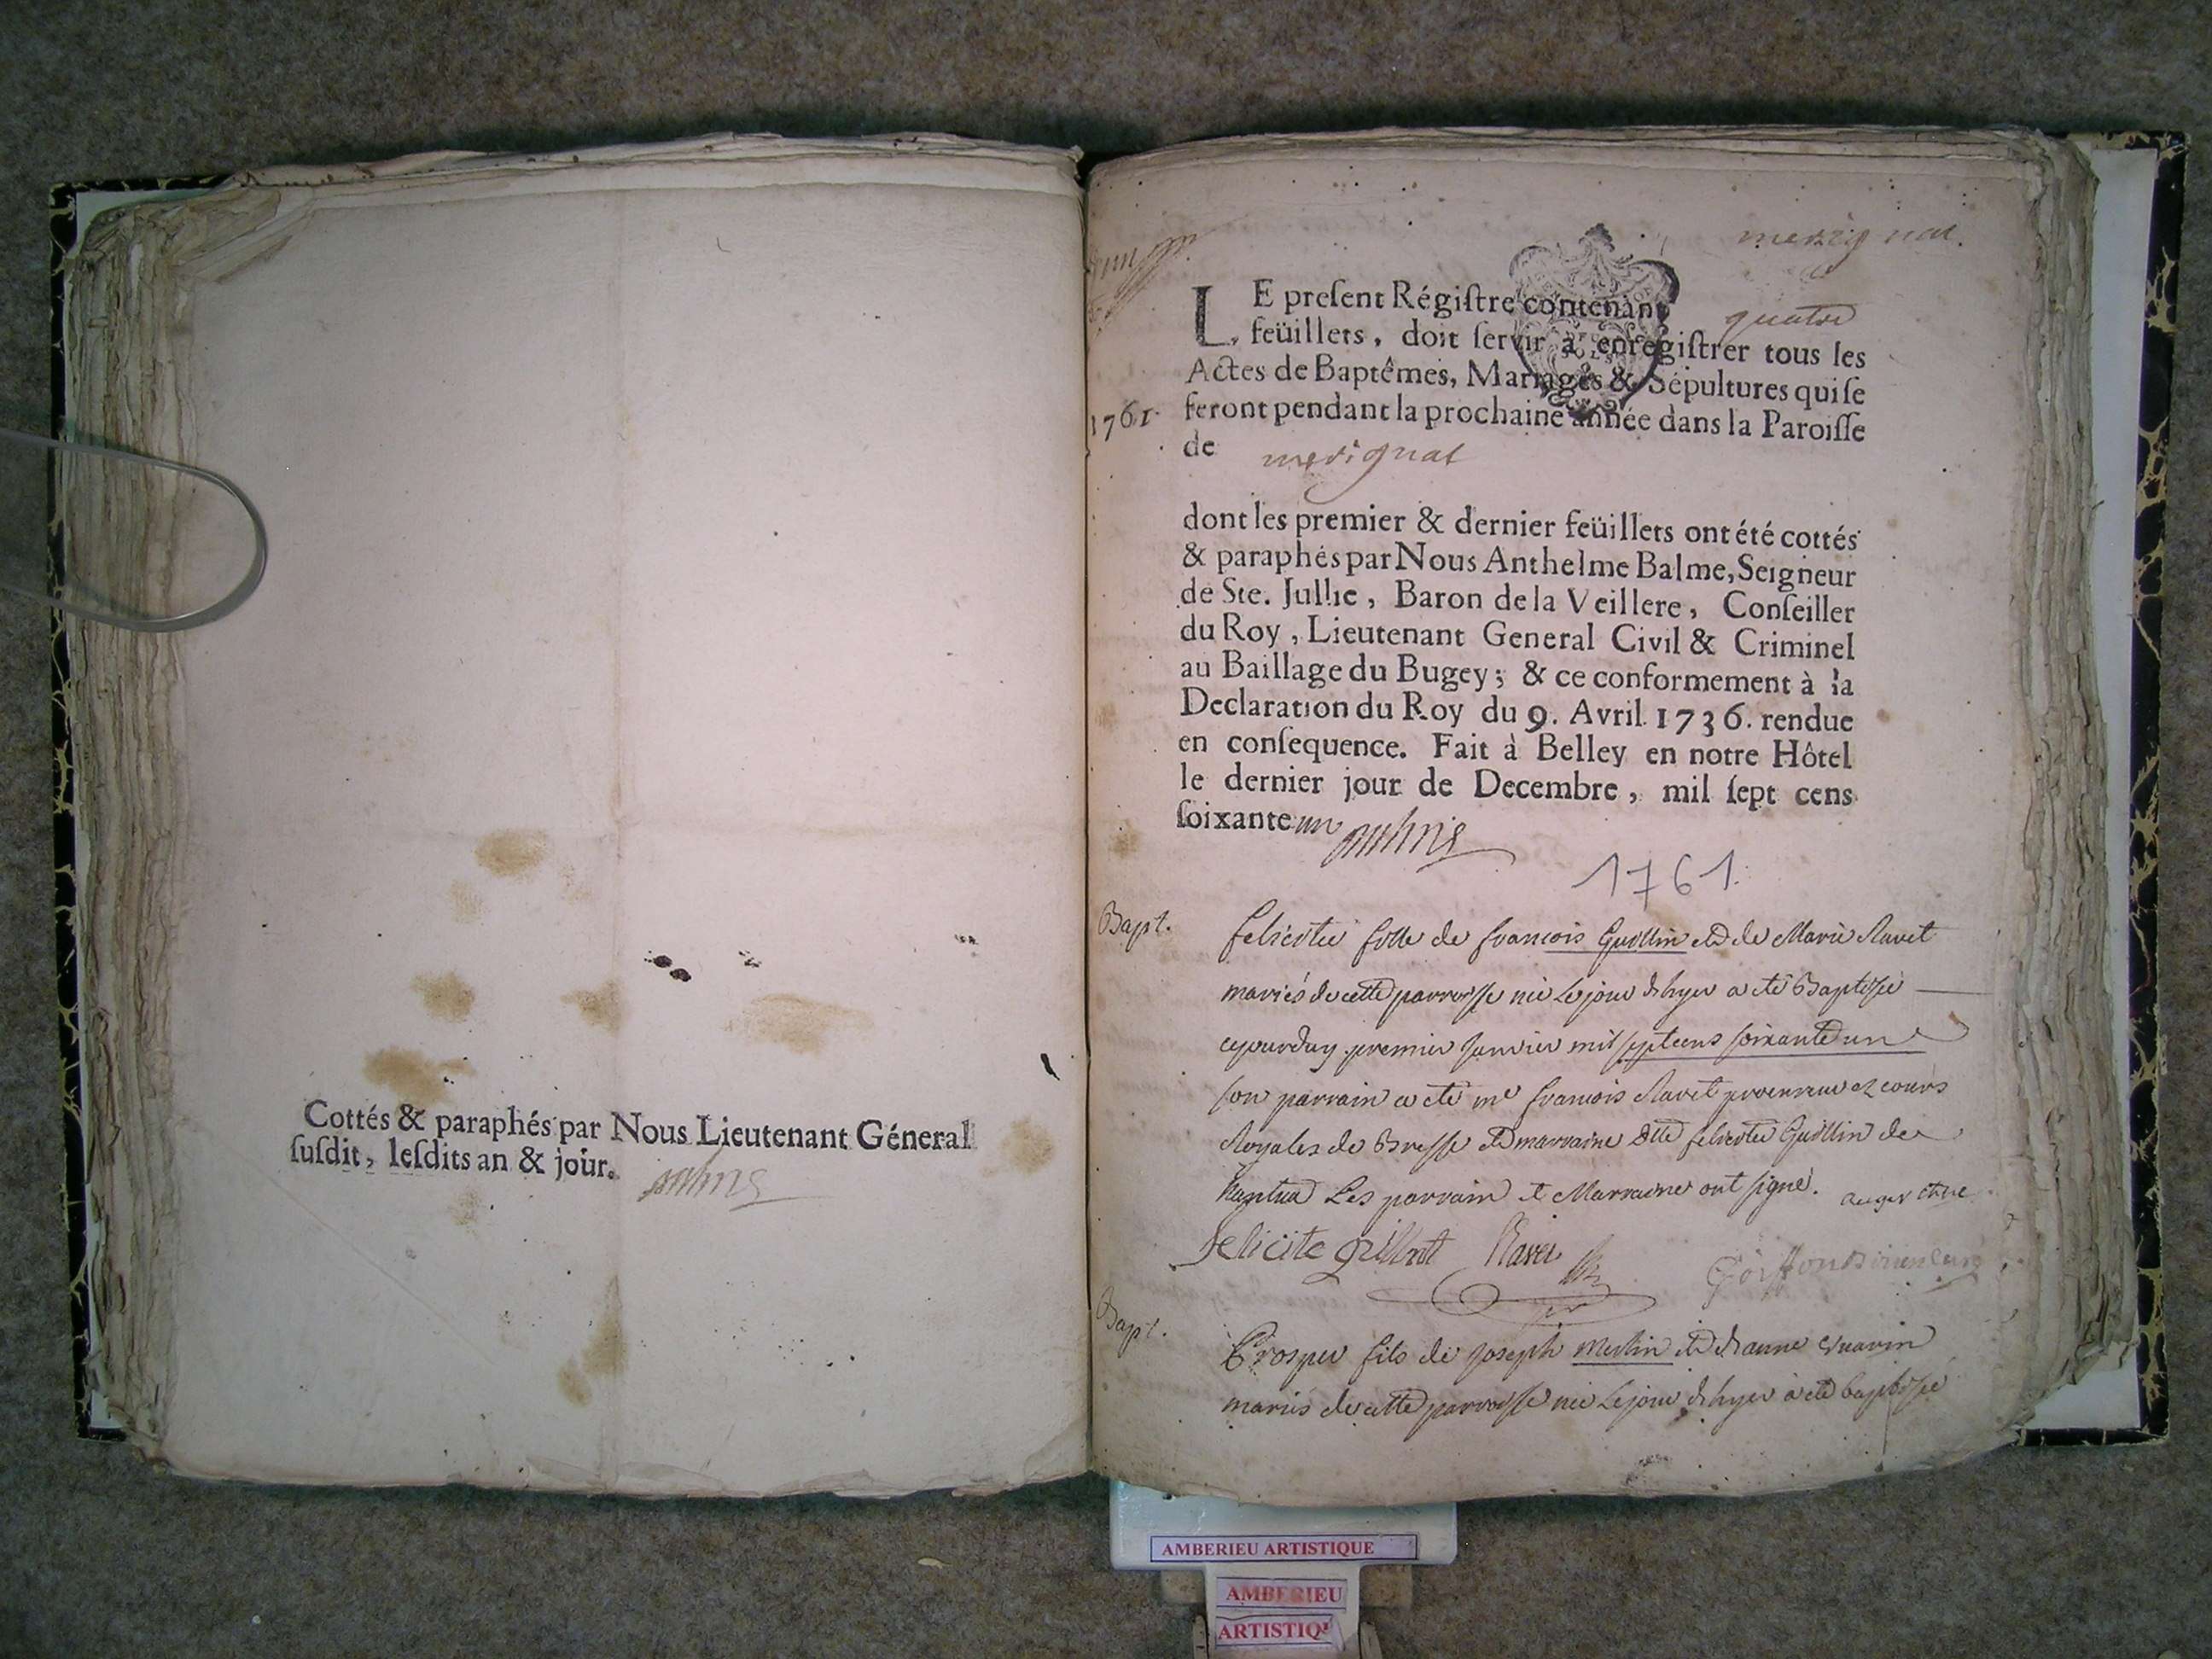 Cottés & paraphés par Nous Lieutenant Géneral
ſuſdit, leſdits an & jour.
merignat.
LE preſent Régiſtre contenant quatre
feüillets, doit ſervir à enregiſtrer tous les
Actes de Baptêmes, Mariages & Sépultures qui ſe
1761. feront pendant la prochaine année dans la Paroiſſe
de merignat
dont les premier & dernier feüillets ont été cottés
& paraphés par Nous Anthelme Balme, Seigneur
de Ste. Jullie, Baron de la Veillere, Conſeiller
du Roy, Lieutenant General Civil & Criminel
au Baillage du Bugey; & ce conformement à la
Declaration du Roy du 9. Avril 1736. rendue
en conſequence. Fait à Belley en notre Hôtel
le dernier jour de Decembre, mil ſept cens
ſoixante un
1761.
Bapt. felicitée fille de francois Guillin et de Marie Ravet
mariés de cette parroisse née le jour d'hyer a eté Baptisée
cejourduy premier Janvier mil sept cens soixante un
son parrain a eté me francois Ravet procureur ez cours
Royales de Bresse et marraine Dlle felicitée Guillin de
Nantua Les parrain et Marraine ont signé.
felicite Ravet
Bapt. Prosper fils de Joseph Merlin et d'anne Guarin
mariés de cette parroisse née Le jour d'hyer à eté baptisé
AMBERIEU ARTISTIQUE
AMBERIEU
ARTISTIQU